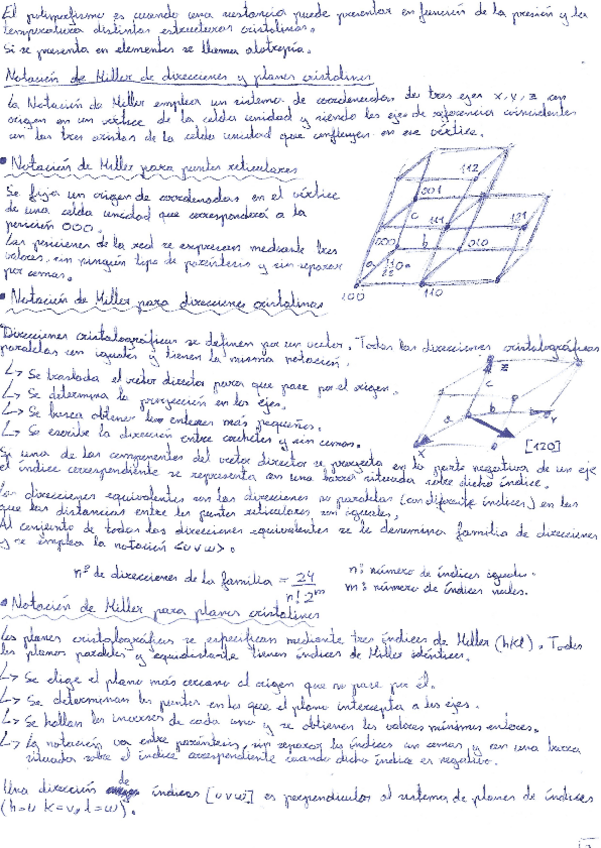 El polimorfismo es cuando una sustancia puede presentar en función de la presión y la
temperatura distintas estructuras cristalinas.
Si se presenta en elementos se llama alotropía.
Notación de Miller de direcciones y planos cristalinos
La Notación de Miller emplea un sistema de coordenadas de tres ejes x, y, z con
origen en un vértice de la celda unidad y siendo los ejes de referencia coincidentes
con las tres aristas de la celda unidad que confluyen en ese vértice.
• Notación de Miller para puntos reticulares
Se fija un origen de coordenadas en el vértice
de una celda unidad que corresponderá a la
posición 000.
Las posiciones de la red se expresan mediante tres
valores, sin ningún tipo de paréntesis y sin separar
por comas.
112
001
c
111
121
000
b
010
a
100
110
• Notación de Miller para direcciones cristalinas
Direcciones cristalográficas se definen por un vector. Todas las direcciones cristalográficas
paralelas son iguales y tienen la misma notación.
↳ Se traslada el vector director para que pase por el origen.
↳ Se determina la proyección en los ejes.
↳ Se busca obtener los enteros más pequeños.
↳ Se escribe la dirección entre corchetes y sin comas.
z
c
a
b
Y
X
[120]
Si una de las componentes del vector director se proyecta en la parte negativa de un eje
el índice correspondiente se representa con una barra situada sobre dicho índice.
Las direcciones equivalentes son las direcciones no paralelas (con diferente índices) en las
que las distancias entre los puntos reticulares son iguales.
Al conjunto de todas las direcciones equivalentes se le denomina familia de direcciones
y se emplea la notación <u v w>.
nº de direcciones de la familia = 24 / n! 2^m
n: número de índices iguales.
m: número de índices nulos.
• Notación de Miller para planos cristalinos
Los planos cristalográficos se especifican mediante tres índices de Miller (hkl). Todos
los planos paralelos y equidistante tienen índices de Miller idénticos.
↳ Se elige el plano más cercano al origen que no pase por él.
↳ Se determinan los puntos en los que el plano intercepta a los ejes.
↳ Se hallan los inversos de cada uno y se obtienen los valores mínimos enteros.
↳ La notación va entre paréntesis, sin separar los índices con comas, y con una barra
situada sobre el índice correspondiente cuando dicho índice es negativo.
Una dirección de índices [u v w] es perpendicular al sistema de planos de índices
(h=u k=v, l=w).